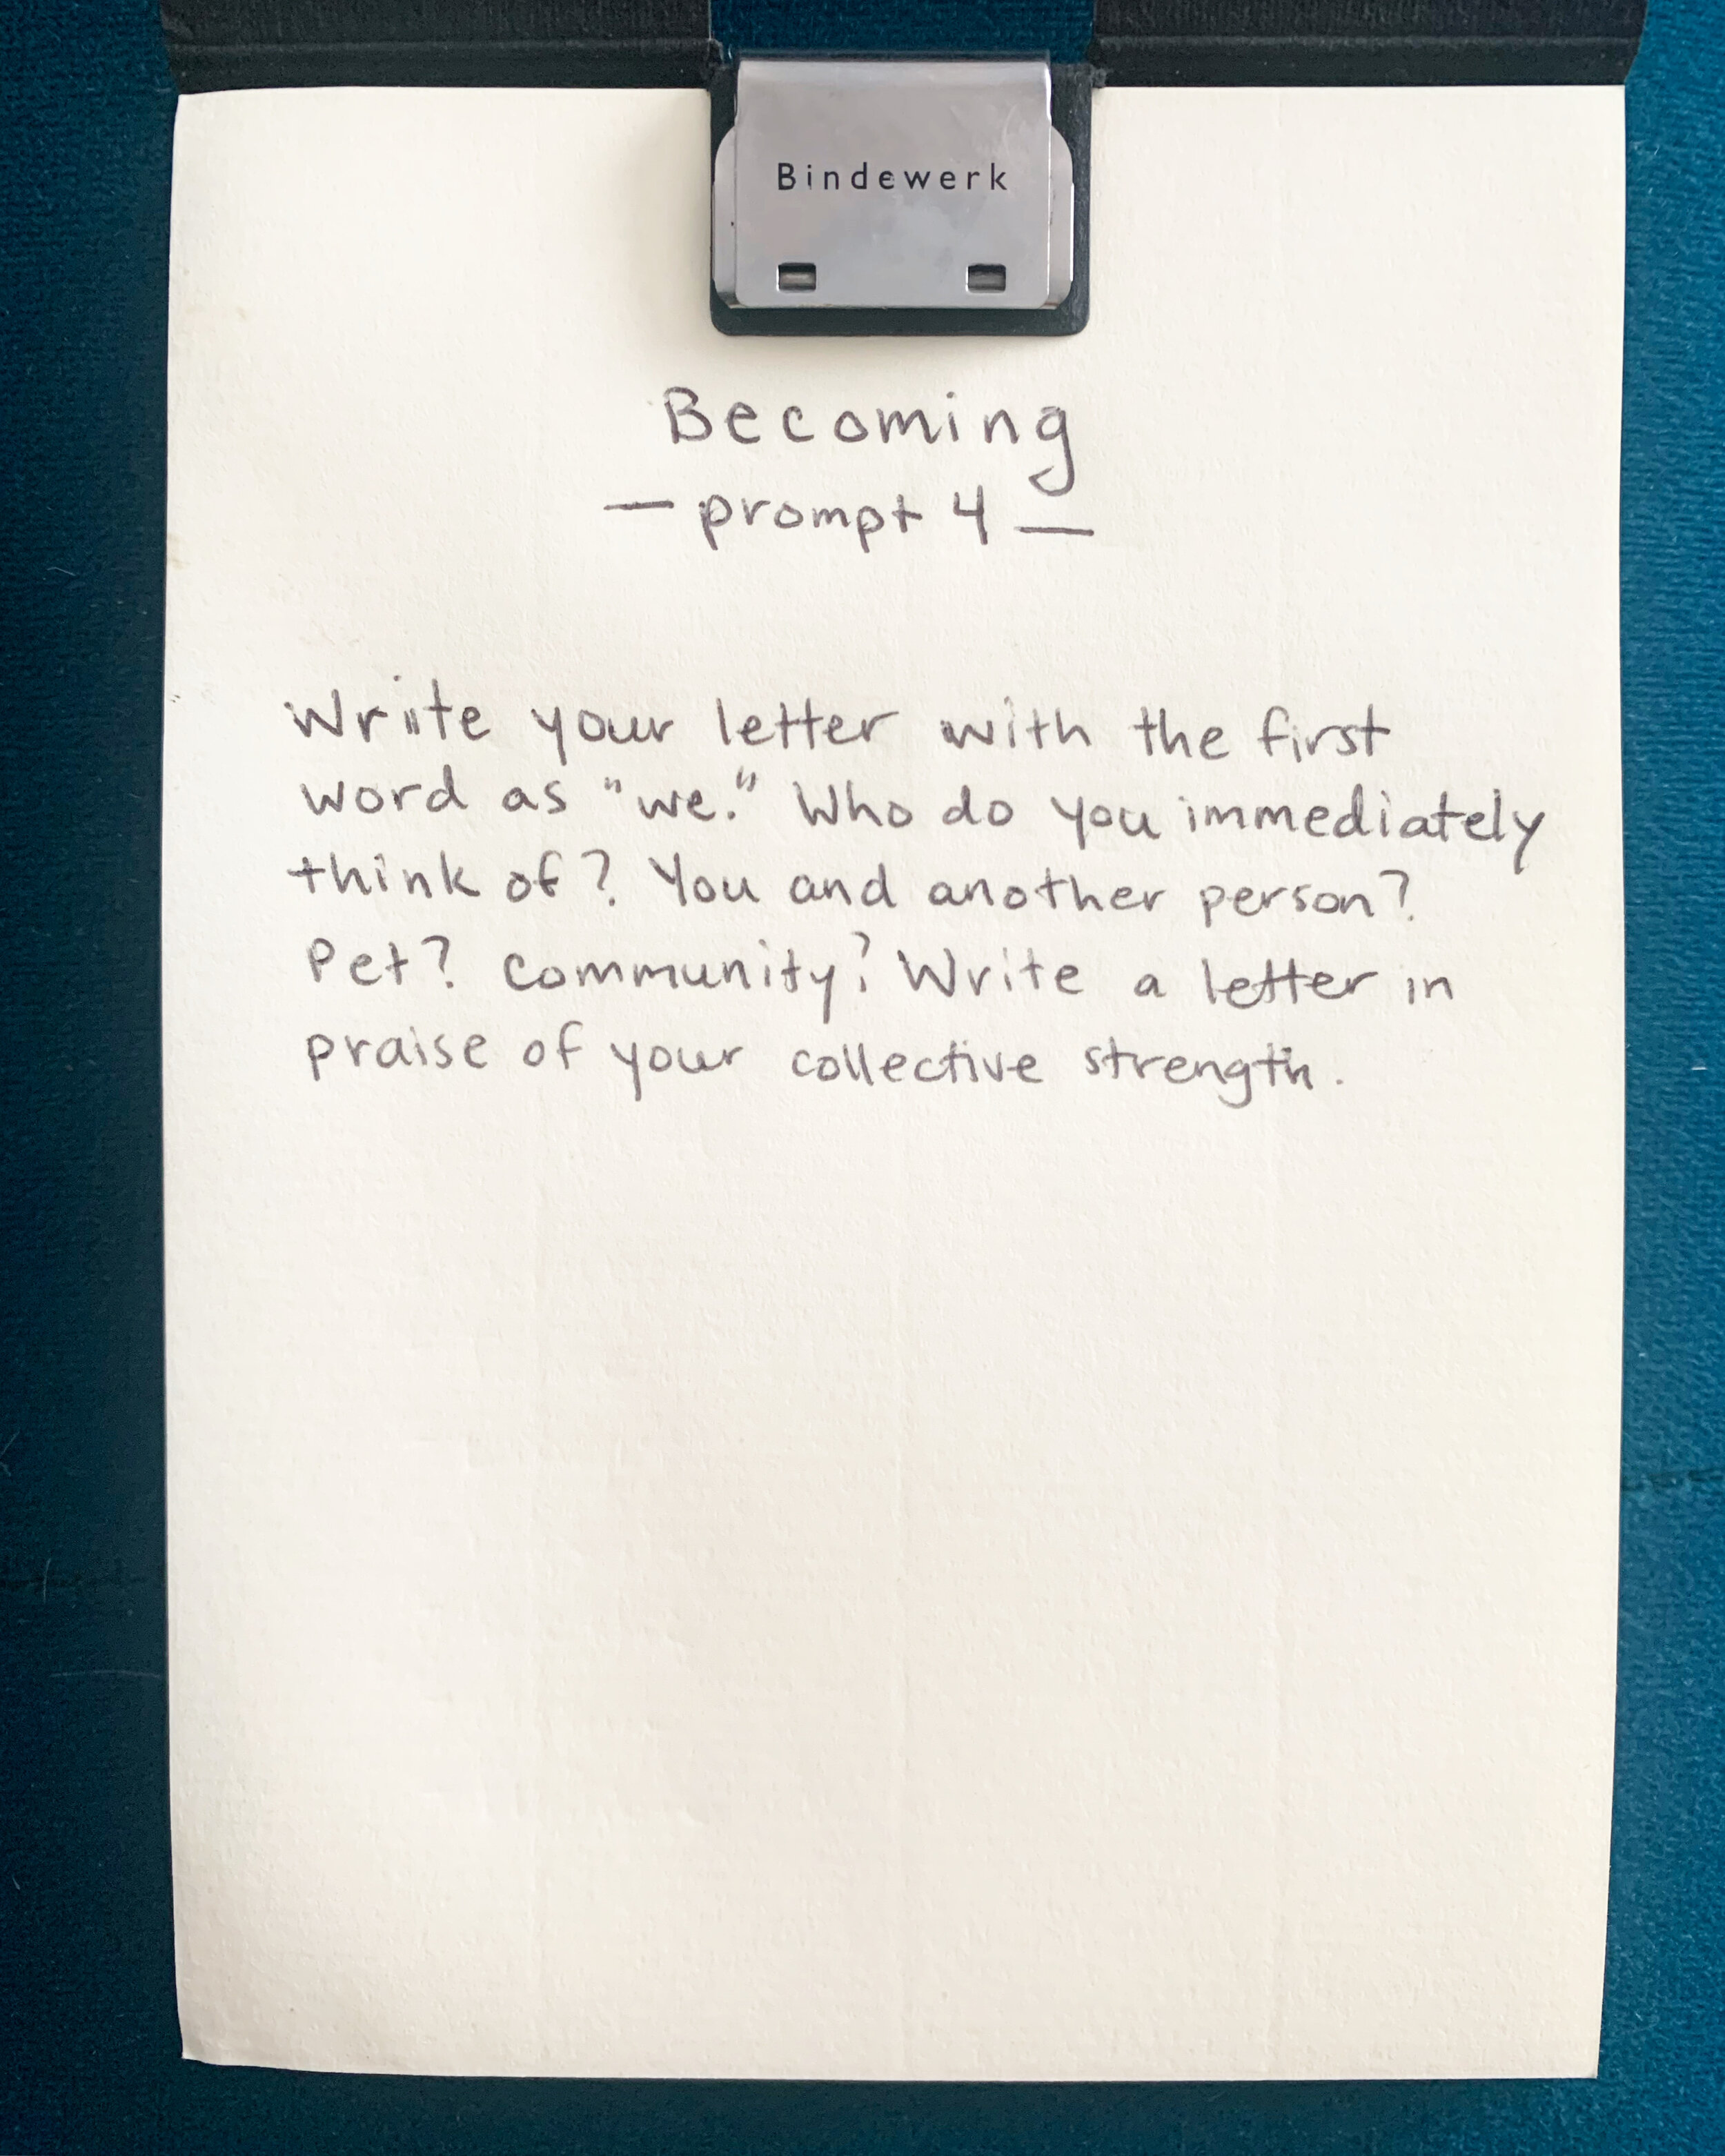 Bindewerk
Becoming
— prompt 4 —
Write your letter with the first
word as "we." Who do you immediately
think of? You and another person?
Pet? Community? Write a letter in
praise of your collective strength.